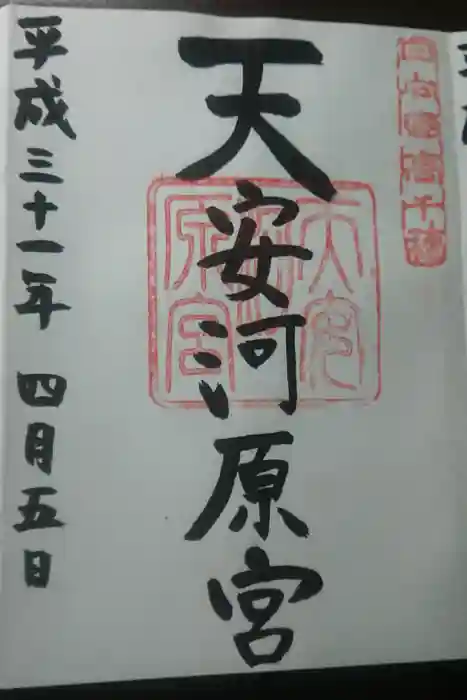 天安河原宮
平成三十一年 四月五日